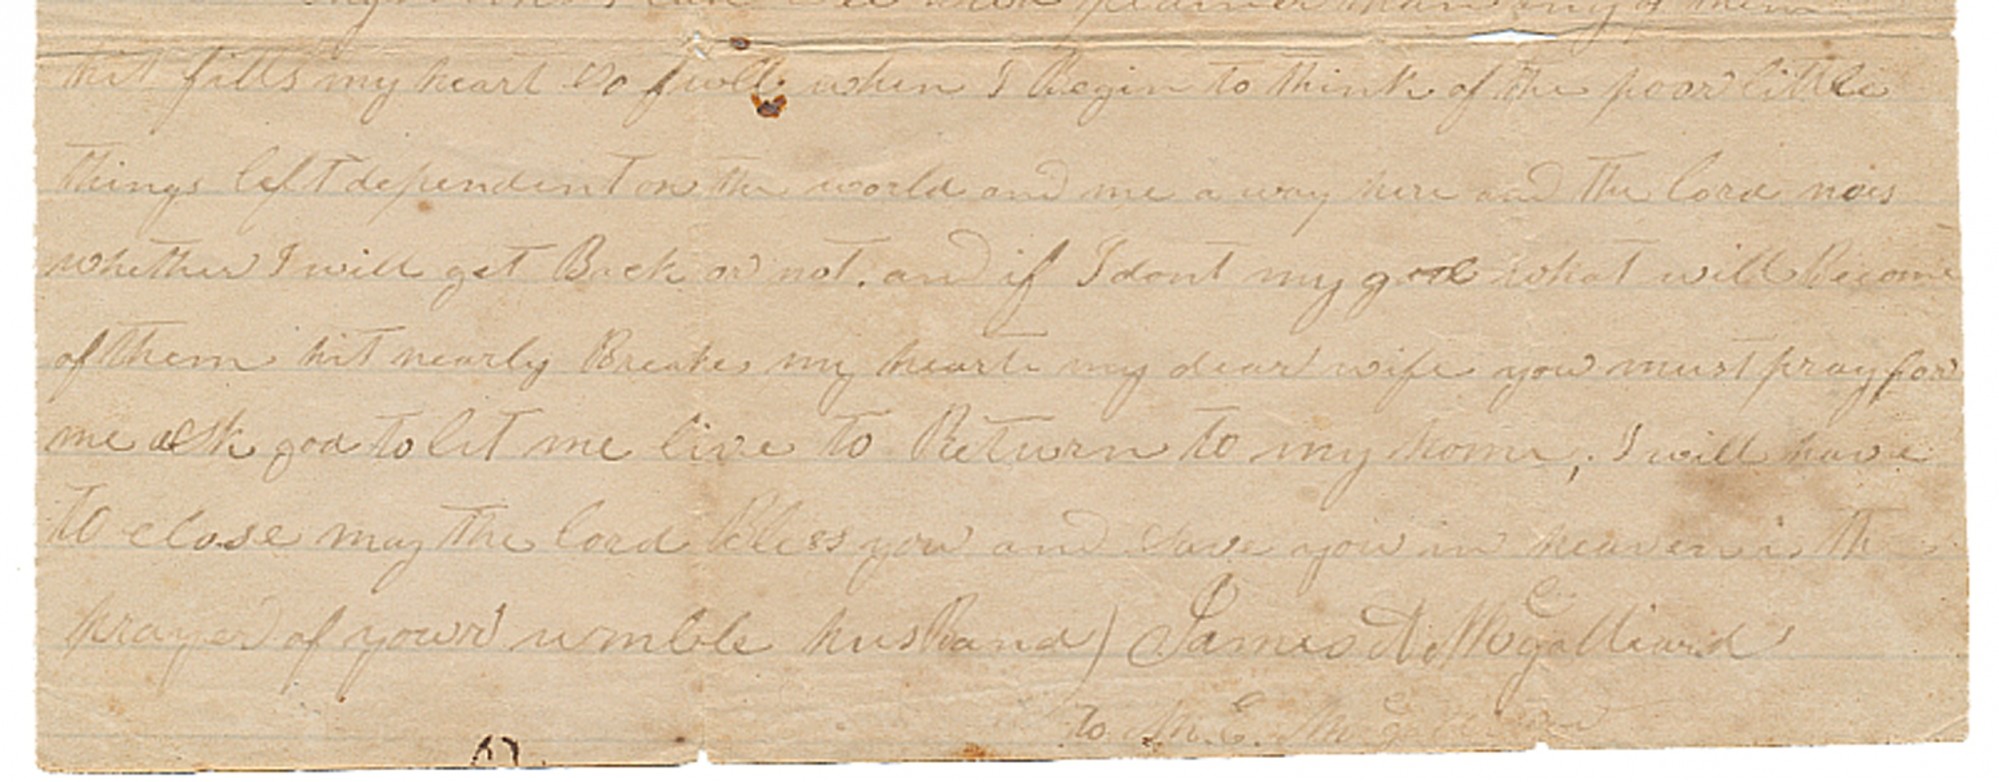 them
hit fills my heart so full when I Begin to think of the poor little
things left dependent on the world and me a way here and the lord nois
whether I will get Back or not. and if I dont my god what will Become
of them hit nearly Breakes my heart my dear wife you must pray for
me ask god to let me live to Return to my home, I will have
to close may the lord Bless you and save you in heaven is the
prayer of your umble husband) James A. McGalliard
to M. E. McGalliard